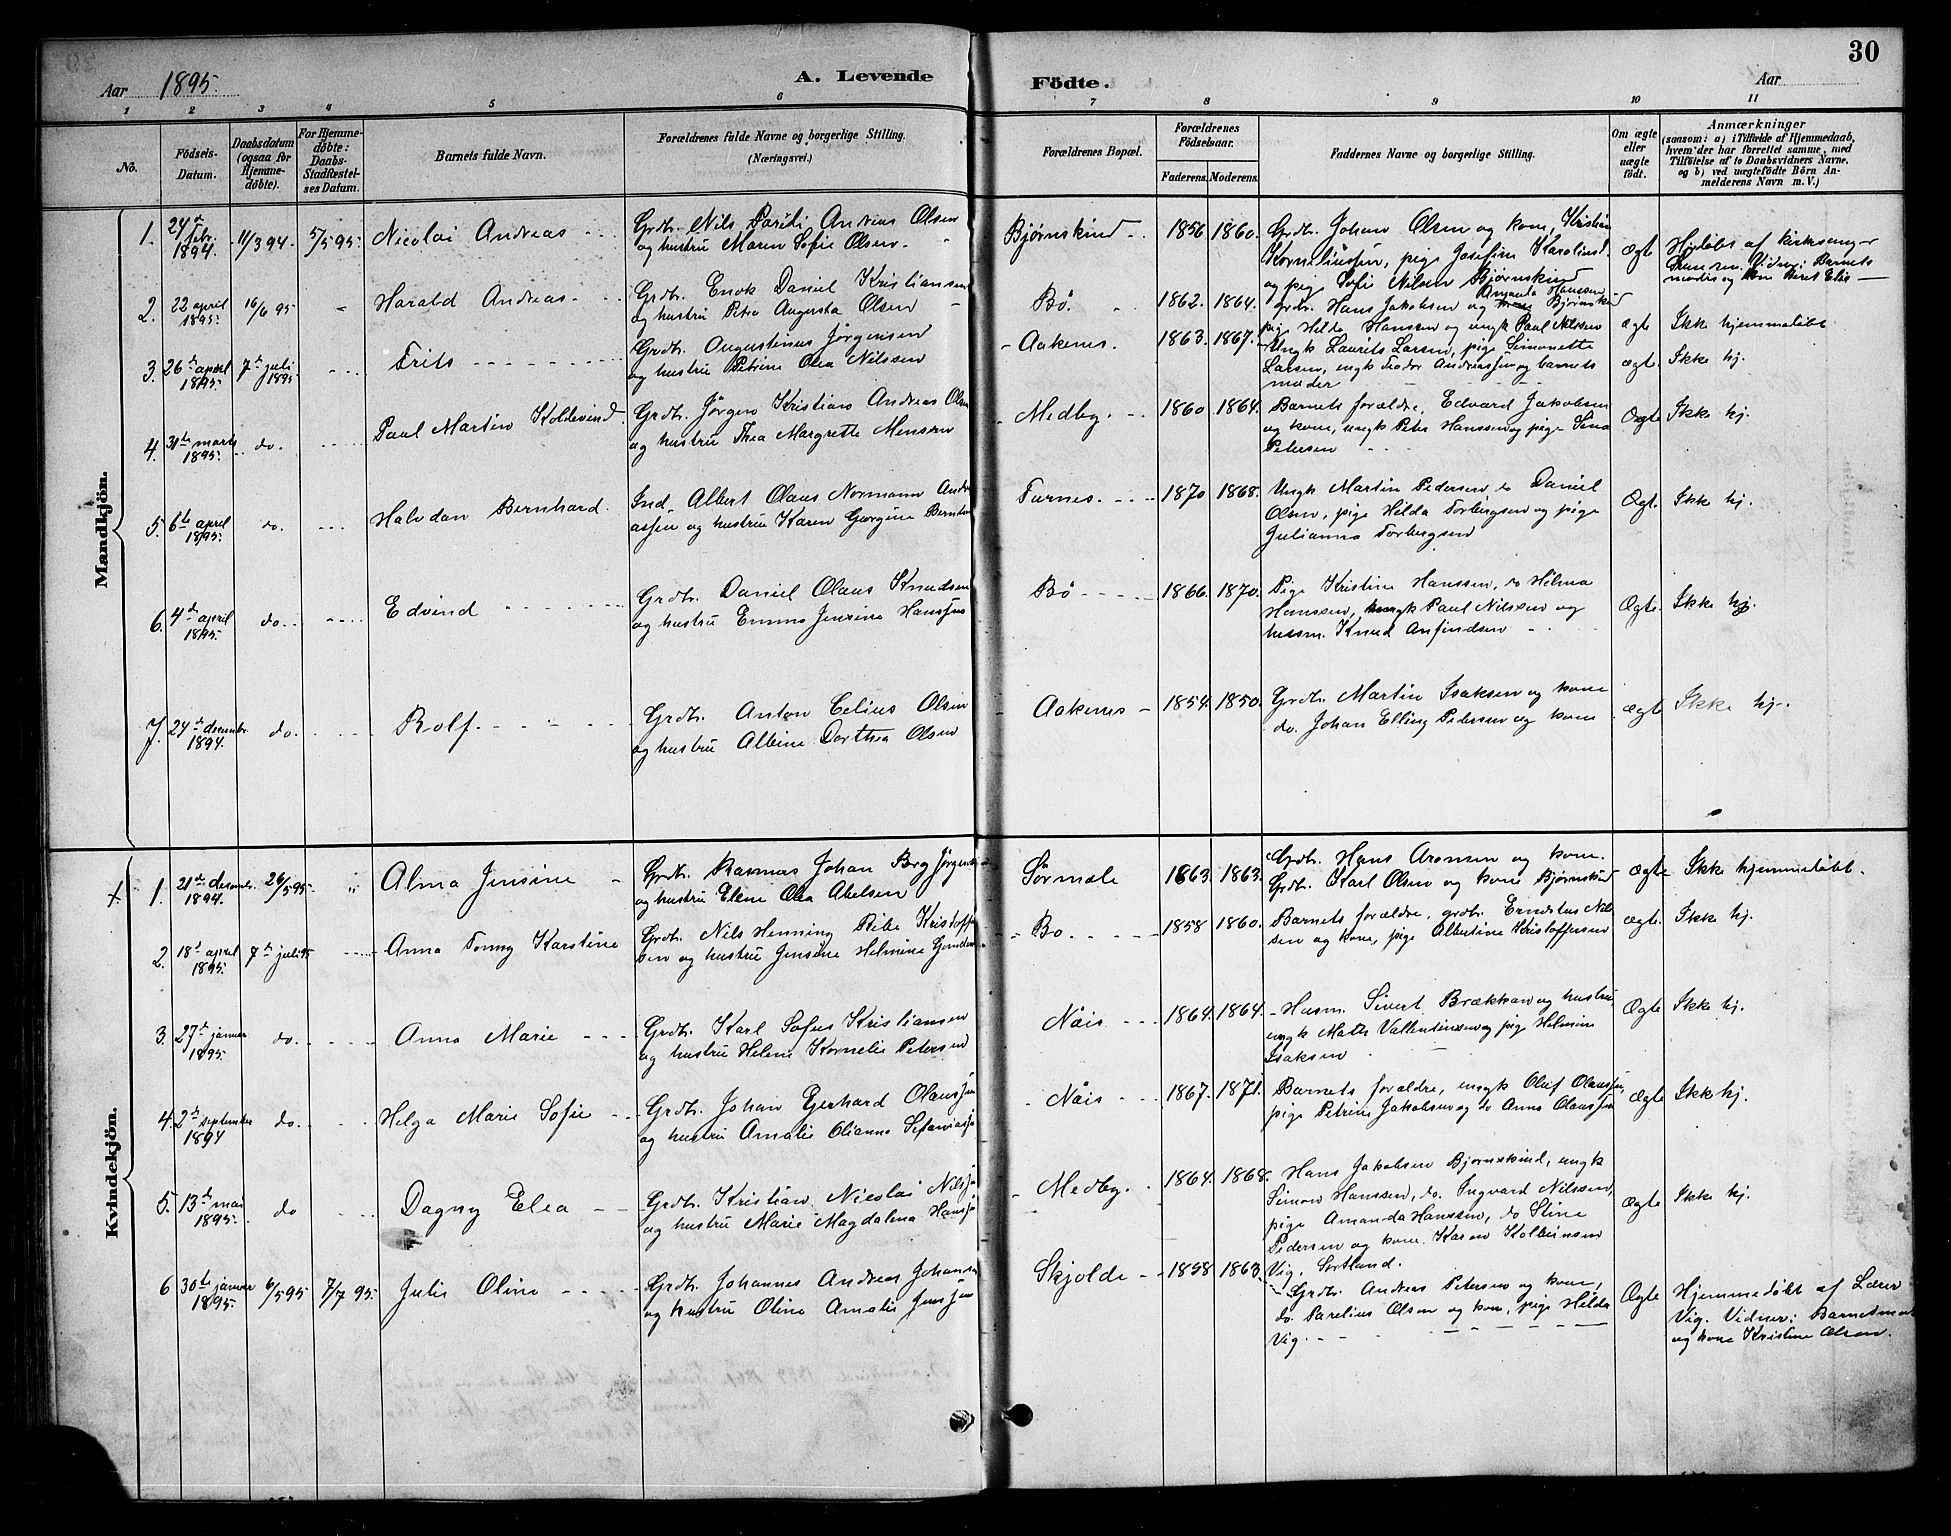 Aar 1895.
A. Levende Födte.
Aar
30
1 2 3 4 5 6 7 8 9 10 11
No.
Födsels-Datum.
Daabsdatum (ogsaa for Hjemme-döbte).
For Hjemme-döbte: Daabs-Stadfæstel-ses Datum.
Barnets fulde Navn.
Forældrenes fulde Navne og borgerlige Stilling. (Næringsvei.)
Forældrenes Bopæl.
Forældrenes Födselsaar.
Faderens. Moderens.
Faddernes Navne og borgerlige Stilling.
Om ægte eller uægte födt.
Anmærkninger
(saasom: a) i Tilfælde af Hjemmedaab, hvem der har forrettet samme, med Tilföielse af to Daabsvidners Navne. og b) ved uægtefödte Börn An-melderens Navn m. V.)
Mandkjön.
1. 24de febr. 1894. 11/3 94. 5/5 95. Nicolai Andreas
Grdb. Nils Andreas Olsen
og hustru Maren Sofie Olsen
Bjørnskind 1856 1860.
Grdb. Johan Olsen og kone, Kristine
Korneliussen, pige Josefine Karolius
og pige Sofie Nilsen Bjørnskind
Ægte
Hj.döbt af kirkesanger
Vidner: Barnets
2. 22 april 1895. 16/6 95 Harald Andreas
Grdb. Enok Daniel Kristiansen
og hustru Petra Augusta Olsen
Bö. 1862. 1864.
grdb. Hans Jakobsen og Amanda Hanssen Bjørnskind
pige Helda Hanssen og ungk Paul Nilssen
ægte Ikke hjemmedöbt
3. 26de april 1895. 7de juli 1895. Frits
Grdb. Augustinus Jørgensen
og hustru Petrine Olea Nilssen
Aakenes. 1863. 1867.
Ungk Laurits Larsen, pige Simonette
Larsen, ungk Teodor Andreassen og barnets
moder
ægte. Ikke hj.
4. 31te marts 1895. do. Paul Martin Koldevind.
Grdb. Jörgen Kristian Andreas Olsen
og hustru Thea Margrette Monsen
Medby. 1860 1864.
Barnets forældre, Edvard Jakobsen
og kone, ungk Peter Hanssen og pige Sina
Petersen
Ægte Ikke hj.
5. 6te april 1895. do. Halvdan Bernhard.
Ind. Albert Olaus Normann Andre
assen og hustru Karen Georgine
Furnes. 1870 1868.
Ungk Martin Pedersen, do Daniel
Olsen, pige Helda Torbergsen og pige
Julianna Torbergsen
Ægt. Ikke hj.
6. 4de april 1895. do. Edvind
Grdb. Daniel Olaus Knudsen
og hustru Emma Jensine Hanssen
Bö 1866. 1870.
Pige Kristine Hanssen, do Hilma
Hanssen, ungk Paul Nilssen og
husm. Knud Anfindsen
Ægte. Ikke hj.
7. 24de decembr. 1894. do. Rolf.
Grdb. Anton Edius Olsen
og hustru Albine Dorthea Olsen
Aakenes 1854. 1850.
Grdb. Martin Isaksen og kone
do. Johan Elling Petersen og kone
ægte Ikke hj.
Kvindekjön.
1. 21de decembr. 1894. 26/5 95. Alma Jensine
Grdb. Rasmus Johan Berg Jørgensen
og hustru Elene Olea Abelsen
Sørmele 1863. 1863.
Grdb. Hans Aronsen og kone.
Grdb. Karl Olsen og kone Bjørnskind
ægte Ikke hjemmedöbt.
2. 18de april 1895. 7de juli 95 Anna Tonny Karstine
Grdb. Nils Henning Ribe Kristoffer
sen og hustru Jensine Helmine
Bo. 1858 1860.
Barnets forældre, grdb. Ernstus Nil
sen og kone, pige Albertine Kristoffersen
ægte. Ikke hj.
3. 27de januar 1895. do. Anna Marie
Grdb. Karl Sofus Kristiansen
og hustru Helene Kornelie Petersen
Nöis 1864. 1864.
Husm. Sivert Brækkan og hustru,
ungk Mathis Vallentinsen og pige Helmine
Isaksen
Ægte Ikke hj.
4. 2de september 1894 do. Helga Marie Sofie
Grdb. Johan Gerhard Olaussen
og hustru Amalie Olianna
Nöis 1867. 1871.
Barnets forældre, ungk Oluf Olaussen,
pige Petrine Jakobsen og do Anna Olaussen
ægte Ikke hj.
5. 13de mai 1895. do Dagny Elea
Grdb. Kristian Nicolai Nilssen
og hustru Marie Magdalena Hanssen
Medby. 1864. 1868.
Hans Jakobsen Bjørnskind, ungk
Simon Hanssen, do. Ingvard Nilssen,
pige Amanda Hanssen, do Stine
Pedersen og kone Karen Kolbeinsen
Vig, Sortland.
Ægte Ikke hj.
6 30te januar 1895. 6/5 95 7/7 95. Julie Oline
Grdb. Johannes Andreas Johansen
og hustru Oline Amalie Jenssen
Skjolde 1858 1863
Grdb. Andreas Petersen og kone,
do. Parelius Olsen og kone, pige Helda
Vig.
Ægte
Hjemmedöbt af Lærer
Vig. Vidner: Barnets mor
og kone Kristine Olsen.